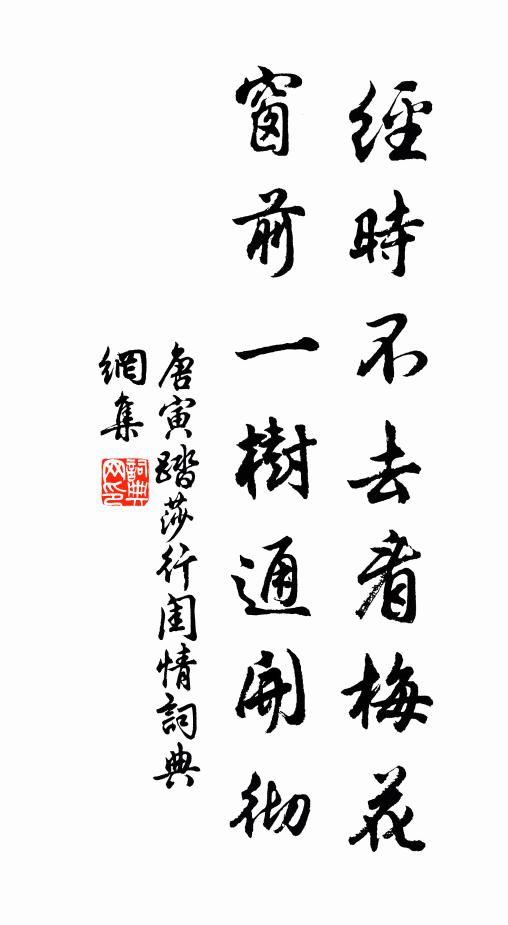 經時不去看梅花
窗前一樹通開彻
唐寅踏莎行闺情詞典
網集
詞典
网印